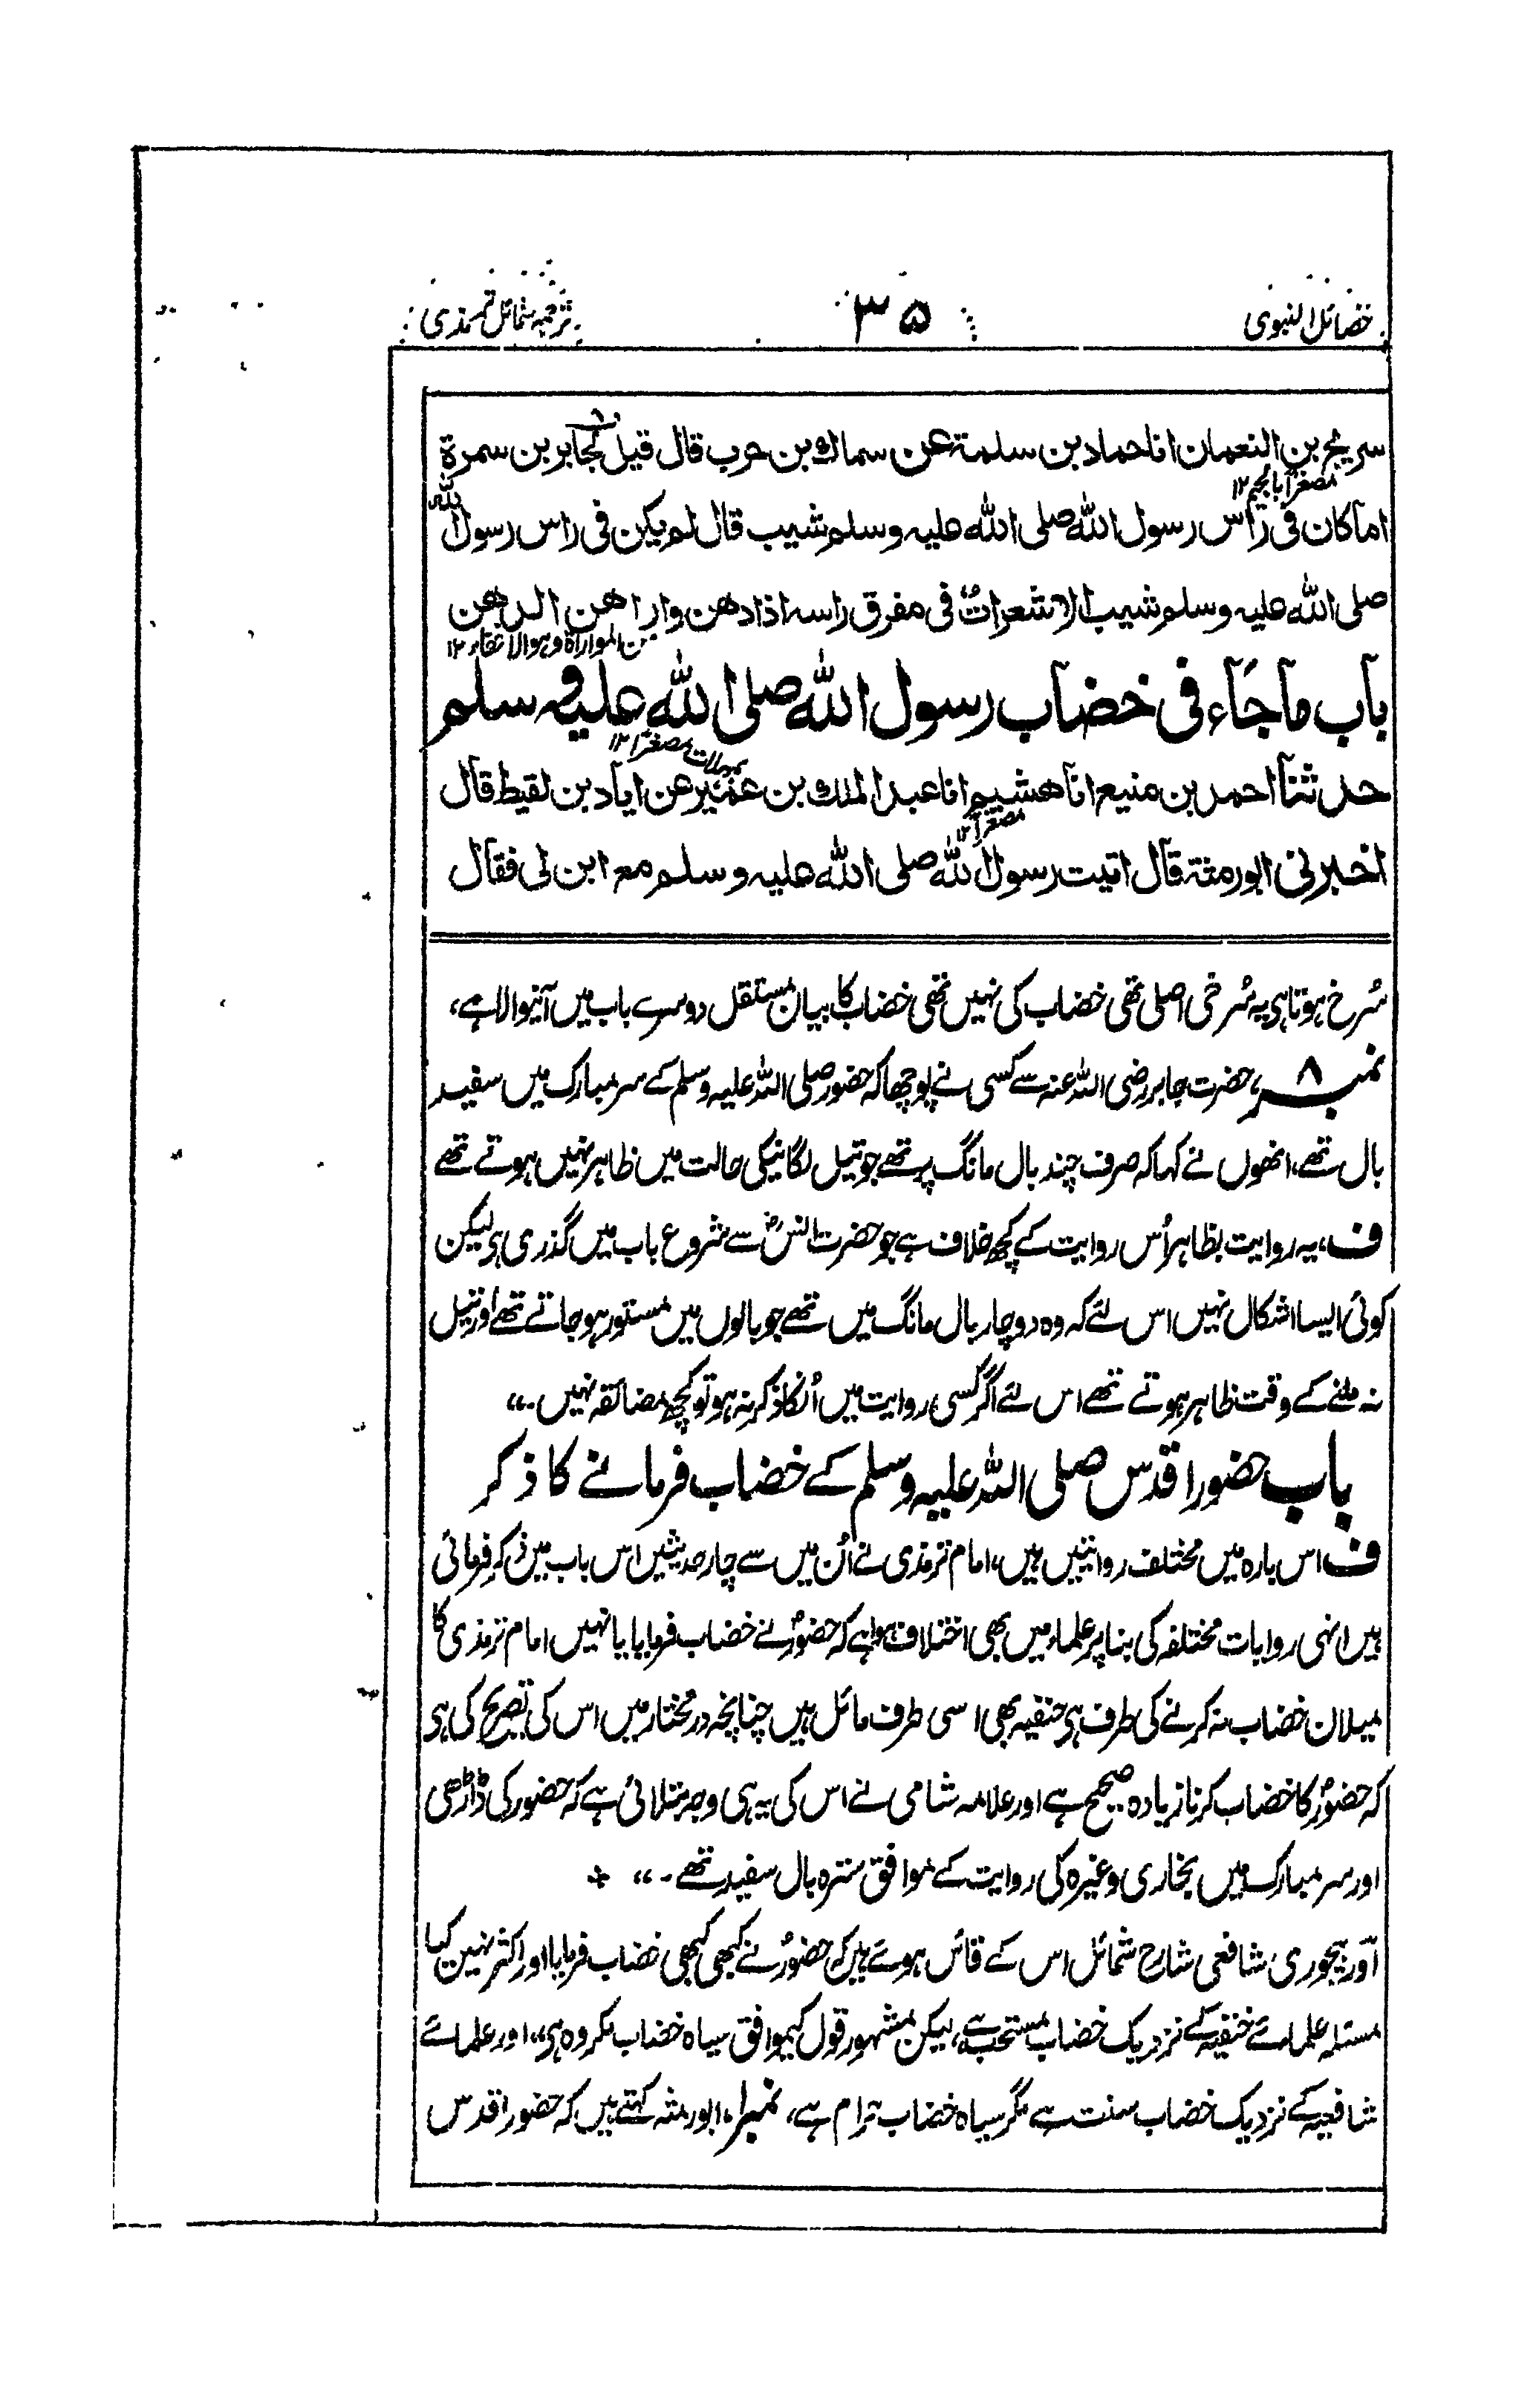 خصائل النبوی ۳۵ ترجمہ شمائل ترمذی
سریج بن النعمان انا حماد بن سلمة عن سماك بن حرب قال قیل لجابر بن سمرة
مصغرا بالجیم ۱۲
اما كان فی راس رسول الله صلی الله علیه وسلم شیب قال لم یكن فی راس رسول الله
صلی الله علیه وسلم شیب الا شعرات فی مفرق راسه اذا دهن واراهن الدهن
من المواراة وهو الاخفاء ۱۲
باب ما جاء فی خضاب رسول الله صلی الله علیه وسلم
مصغرا ۱۲
حدثنا احمد بن منیع انا هشیم انا عبد الملك بن عمیر عن ایاد بن لقیط قال
مصغرا ۱۲
اخبرنی ابو رمثة قال اتیت رسول الله صلی الله علیه وسلم مع ابن لی فقال
سُرخ ہوتا ہی یہ سُرخی اصلی تھی خضاب کی نہیں تھی خضاب کا بیان مستقل دوسرے باب میں آنیوالا ہے،
نمبر ۸، حضرت جابر رضی اللہ عنہ سے کسی نے پوچھا کہ حضور صلی اللہ علیہ وسلم کے سر مبارک میں سفید
بال تھے، انھوں نے کہا کہ صرف چند بال مانگ پر تھے جو تیل لگانیکی حالت میں ظاہر نہیں ہوتے تھے
ف، یہ روایت بظاہر اُس روایت کے کچھ خلاف ہے جو حضرت انسؓ سے شروع باب میں گذری ہی لیکن
کوئی ایسا اشکال نہیں اس لئے کہ وہ دو چار بال مانگ میں تھے جو بالوں میں مستور ہو جاتے تھے اور تیل
نہ ملنے کے وقت ظاہر ہوتے تھے اس لئے اگر کسی روایت میں اُنکا ذکر نہ ہو تو کچھ مضائقہ نہیں۔،،
باب حضور اقدس صلی اللہ علیہ وسلم کے خضاب فرمانے کا ذکر
ف اس بارہ میں مختلف روایتیں ہیں، امام ترمذی نے اُن میں سے چار حدیثیں اس باب میں ذکر فرمائی
ہیں انہی روایات مختلفہ کی بنا پر علماء میں بھی اختلاف ہوا ہے کہ حضورؐ نے خضاب فرمایا یا نہیں امام ترمذی کا
میلان خضاب نہ کرنے کی طرف ہی حنفیہ بھی اسی طرف مائل ہیں چنانچہ در مختار میں اس کی تصریح کی ہی
کہ حضورؐ کا خضاب کرنا زیادہ صحیح ہے اور علامہ شامی نے اس کی یہ ہی وجہ بتلائی ہے کہ حضور کی ڈاڑھی
اور سر مبارک میں بخاری وغیرہ کی روایت کے موافق سترہ بال سفید تھے۔،،
اور بیجوری شافعی شارح شمائل اس کے قائل ہوئے ہیں کہ حضورؐ نے کبھی کبھی خضاب فرمایا اور اکثر نہیں کیا
مسئلہ علمائے حنفیہ کے نزدیک خضاب مستحب ہے، لیکن مشہور قول کیموافق سیاہ خضاب مکروہ ہی،، اور علمائے
شافعیہ کے نزدیک خضاب سنت ہے مگر سیاہ خضاب حرام ہے، نمبر۱، ابو رمثہ کہتے ہیں کہ حضور اقدس